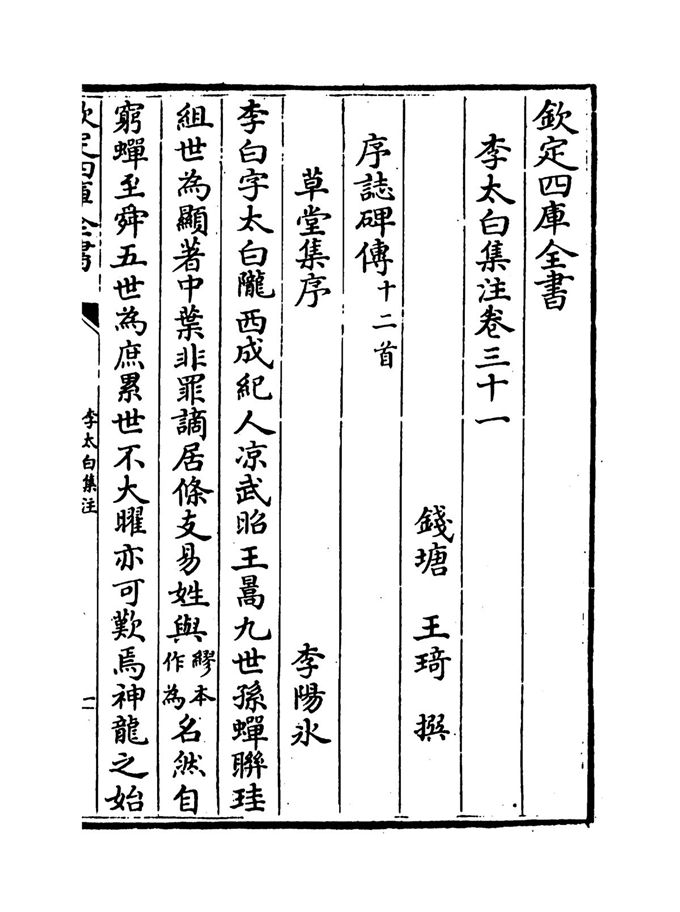 欽定四庫全書
李太白集注卷三十一
錢塘 王琦 撰
序誌碑傳十二首
草堂集序 李陽冰
李白字太白隴西成紀人涼武昭王暠九世孫蟬聯珪
組世為顯著中葉非罪謫居條支易姓與繆本作為名然自
窮蟬至舜五世為庶累世不大曜亦可歎焉神龍之始
欽定四庫全書
李太白集注